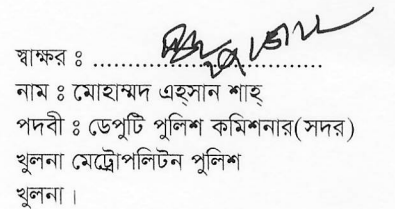 স্বাক্ষর ঃ ..............................
নাম ঃ মোহাম্মদ এহ্সান শাহ্
পদবী ঃ ডেপুটি পুলিশ কমিশনার(সদর)
খুলনা মেট্রোপলিটন পুলিশ
খুলনা।